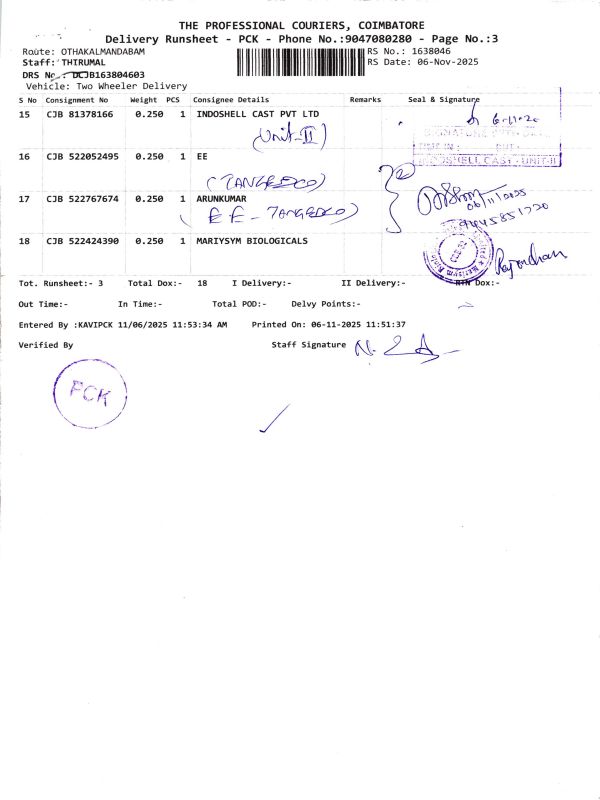 THE PROFESSIONAL COURIERS, COIMBATORE
Delivery Runsheet - PCK - Phone No.:9047080280 - Page No.:3
Route: OTHAKALMANDABAM RS No.: 1638046
Staff: THIRUMAL RS Date: 06-Nov-2025
DRS No.: DCJB163804603
Vehicle: Two Wheeler Delivery
S No Consignment No Weight PCS Consignee Details Remarks Seal & Signature
15 CJB 81378166 0.250 1 INDOSHELL CAST PVT LTD
(Unit-II)
INDOSHELL CAST - UNIT-II
16 CJB 522052495 0.250 1 EE
(TANGEDCO)
17 CJB 522767674 0.250 1 ARUNKUMAR
06/11/2025
(EE - TANGEDCO)
9445851720
18 CJB 522424390 0.250 1 MARIYSYM BIOLOGICALS
Tot. Runsheet:- 3 Total Dox:- 18 I Delivery:- II Delivery:- RTN Dox:-
Out Time:- In Time:- Total POD:- Delvy Points:-
Entered By :KAVIPCK 11/06/2025 11:53:34 AM Printed On: 06-11-2025 11:51:37
Verified By Staff Signature
PCK